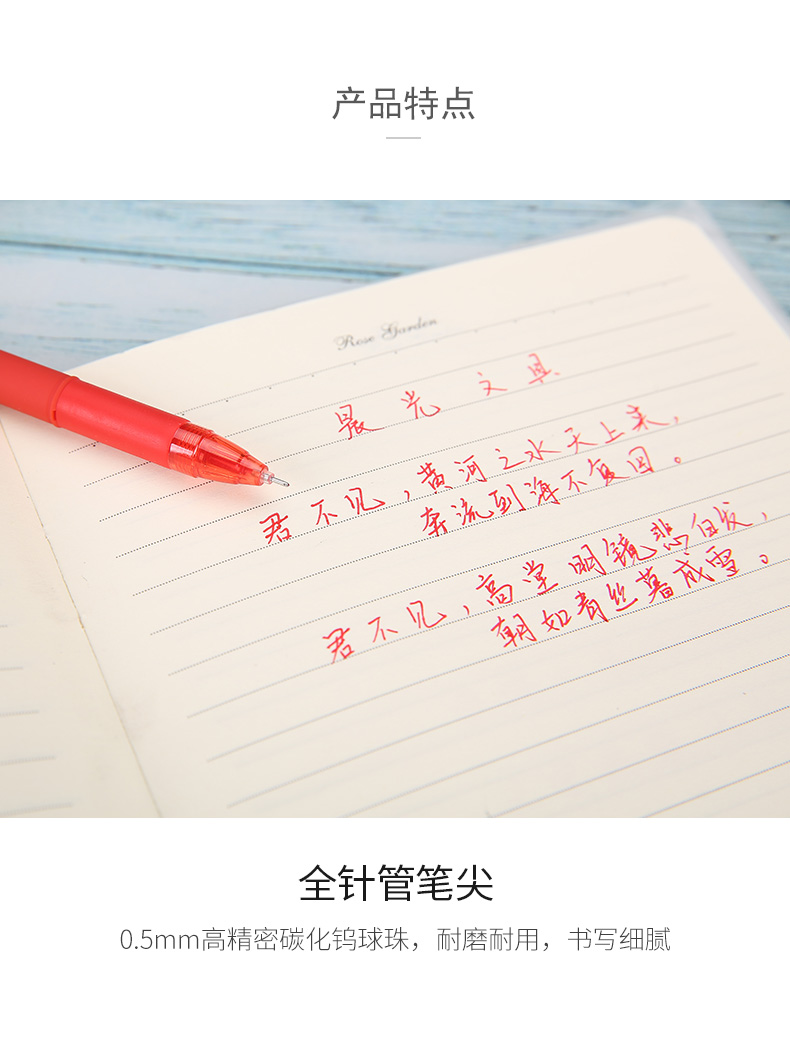 产品特点
Rose Garden
晨光 文具
君不见，黄河之水天上来，
奔流到海不复回。
君不见，高堂明镜悲白发，
朝如青丝暮成雪。
全针管笔尖
0.5mm高精密碳化钨球珠，耐磨耐用，书写细腻